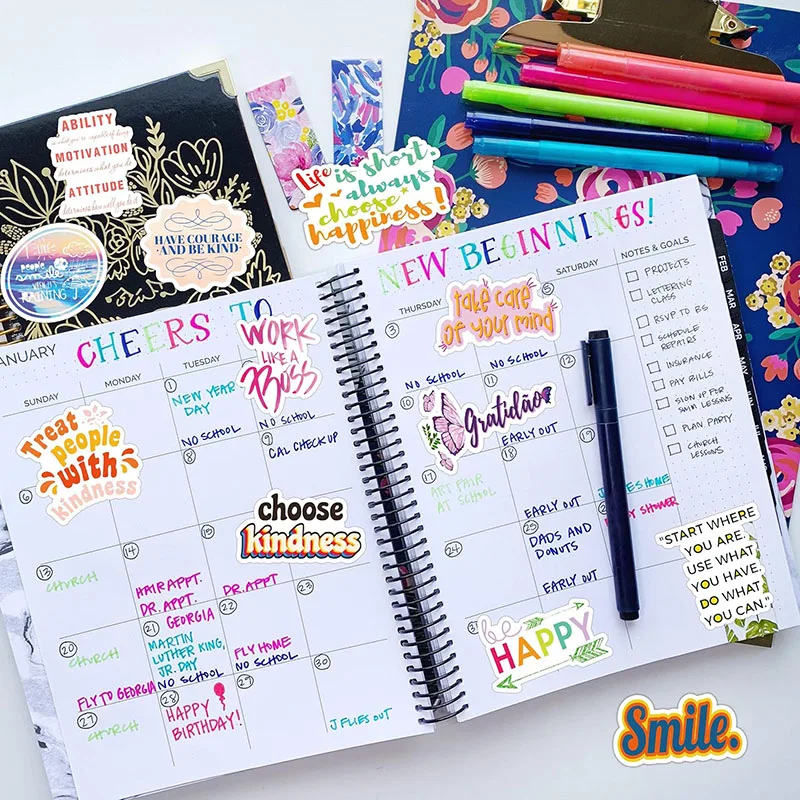 ABILITY
is what you're capable of doing
MOTIVATION
determines what you do
ATTITUDE
determines how well you do it
HAVE COURAGE
AND BE KIND
people
smile
RAINING
Life is short,
always
choose
happiness!
JANUARY
CHEERS TO
NEW BEGINNINGS!
SUNDAY
MONDAY
TUESDAY
THURSDAY
SATURDAY
NOTES & GOALS
WORK
LIKE A
BOSS
take care
of your mind
Treat
people
with
kindness
Gratidão
choose
kindness
be
HAPPY
"START WHERE
YOU ARE.
USE WHAT
YOU HAVE.
DO WHAT
YOU CAN."
Smile.
1
NEW YEAR
DAY
NO SCHOOL
NO SCHOOL
3
NO SCHOOL
NO SCHOOL
5
6
8
9
CAL CHECKUP
10
11
EARLY OUT
12
13
CHURCH
14
HAIR APPT.
DR. APPT.
15
DR. APPT
17
ART FAIR
AT SCHOOL
18
EARLY OUT
19
J FLIES HOME
20
CHURCH
FLY TO GEORGIA
21
GEORGIA
MARTIN
LUTHER KING,
JR. DAY
NO SCHOOL
22
FLY HOME
NO SCHOOL
23
24
25
DADS AND
DONUTS
EARLY OUT
SHOWER
27
CHURCH
28
HAPPY
BIRTHDAY!
29
30
J FLIES OUT
31
PROJECTS
LETTERING
CLASS
RSVP TO BS
SCHEDULE
REPAIRS
INSURANCE
PAY BILLS
SIGN UP FOR
SWIM LESSONS
PLAN PARTY
CHURCH
LESSONS
FEB
MAR
APR
MAY